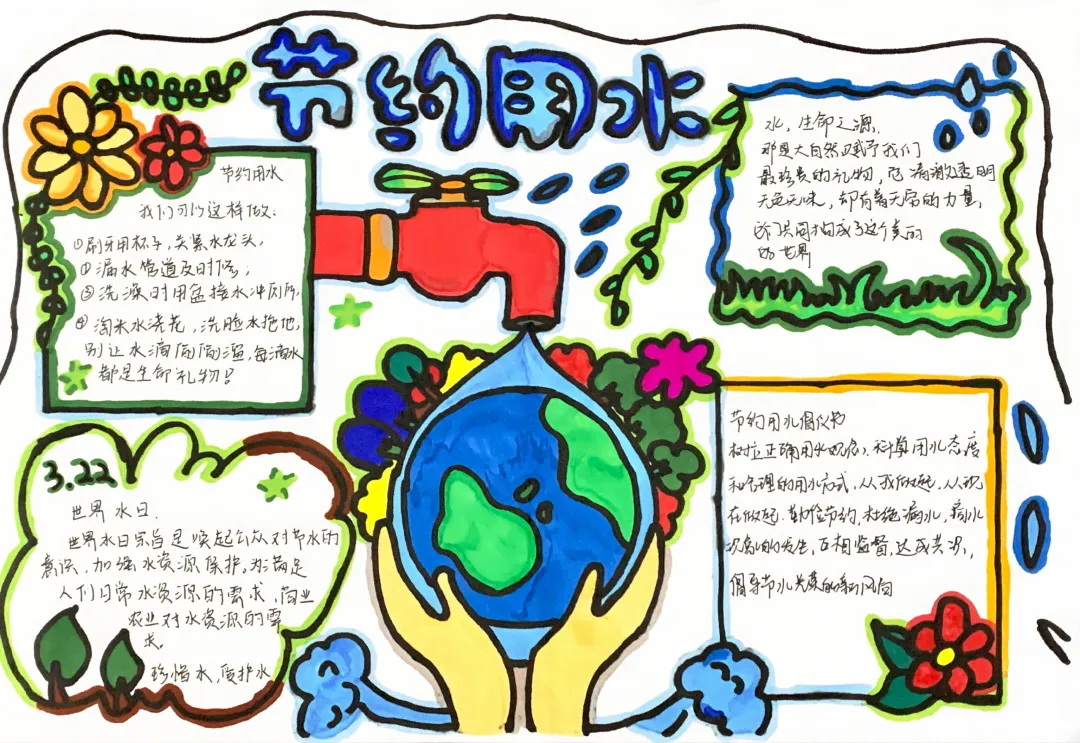 节约用水
节约用水
我们可以这样做：
①刷牙用杯子，关紧水龙头，
②漏水管道及时修；
③洗澡时用盆接水冲厕所，
④淘米水浇花，洗脸水拖地，
别让水滴白白溜，每滴水
都是生命礼物！
水，生命之源，
那是大自然赋予我们
最珍贵的礼物，它清澈透明
无色无味，却有着无穷的力量，
共同构成了这个美丽
的世界
3.22
世界水日．
世界水日宗旨是唤起公众对节水的
意识，加强水资源保护，为满足
人们日常水资源的需求，商业
农业对水资源的需
求。
珍惜水，爱护水
节约用水倡议书
树立正确用水观念，科学用水态度
和合理的用水方式，从我做起，从现
在做起．勤俭节约，杜绝漏水，
的发生，互相监督，达成共识，
倡导节水光荣的新风向